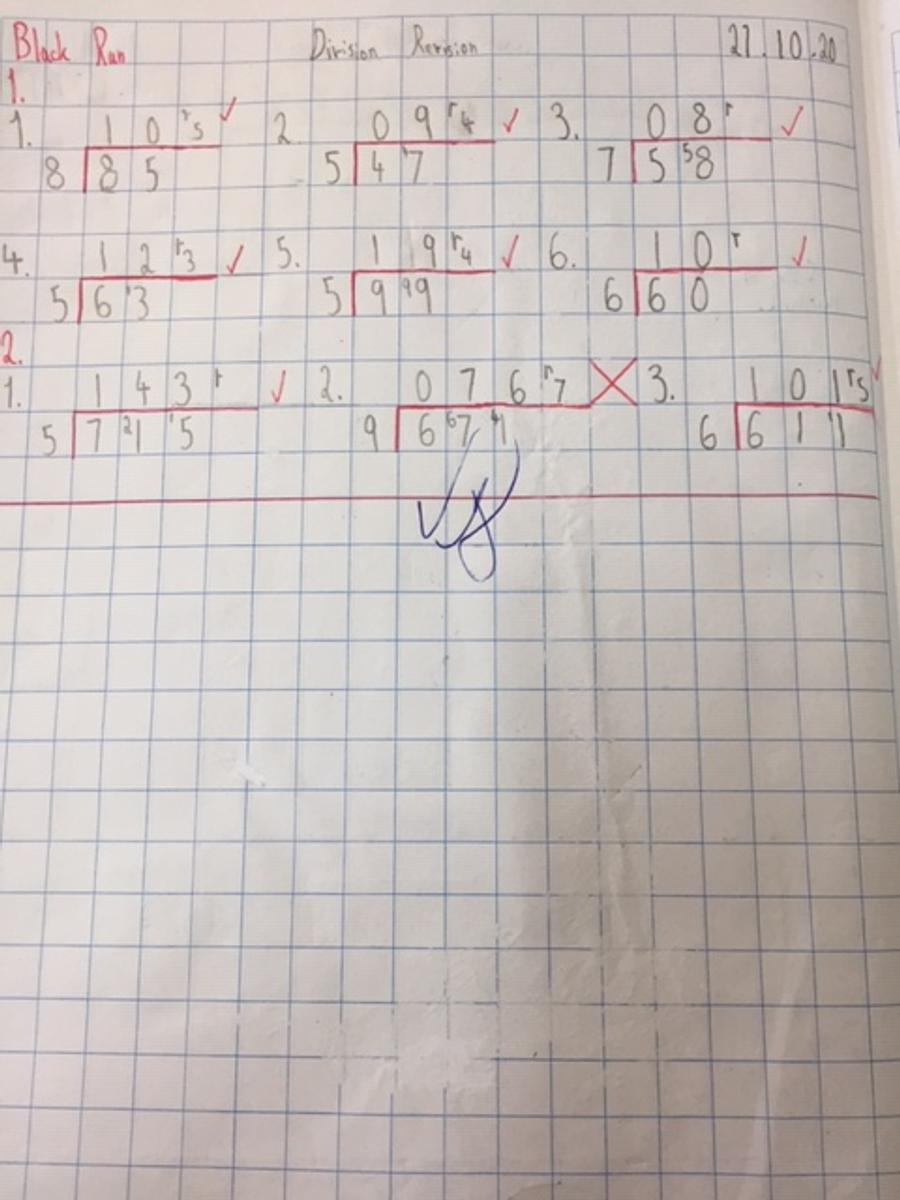 Black Run Division Revision 27.10.20
1.
1. 1 0 r5 ✓ 2. 0 9 r4 ✓ 3. 0 8 r ✓
8 8 5 5 4 47 7 5 58
4. 1 2 r3 ✓ 5. 1 9 r4 ✓ 6. 1 0 r ✓
5 6 13 5 9 49 6 6 0
2.
1. 1 4 3 r ✓ 2. 0 7 6 r7 X 3. 1 0 1 r5 ✓
5 7 21 15 9 6 67 41 6 6 1 11